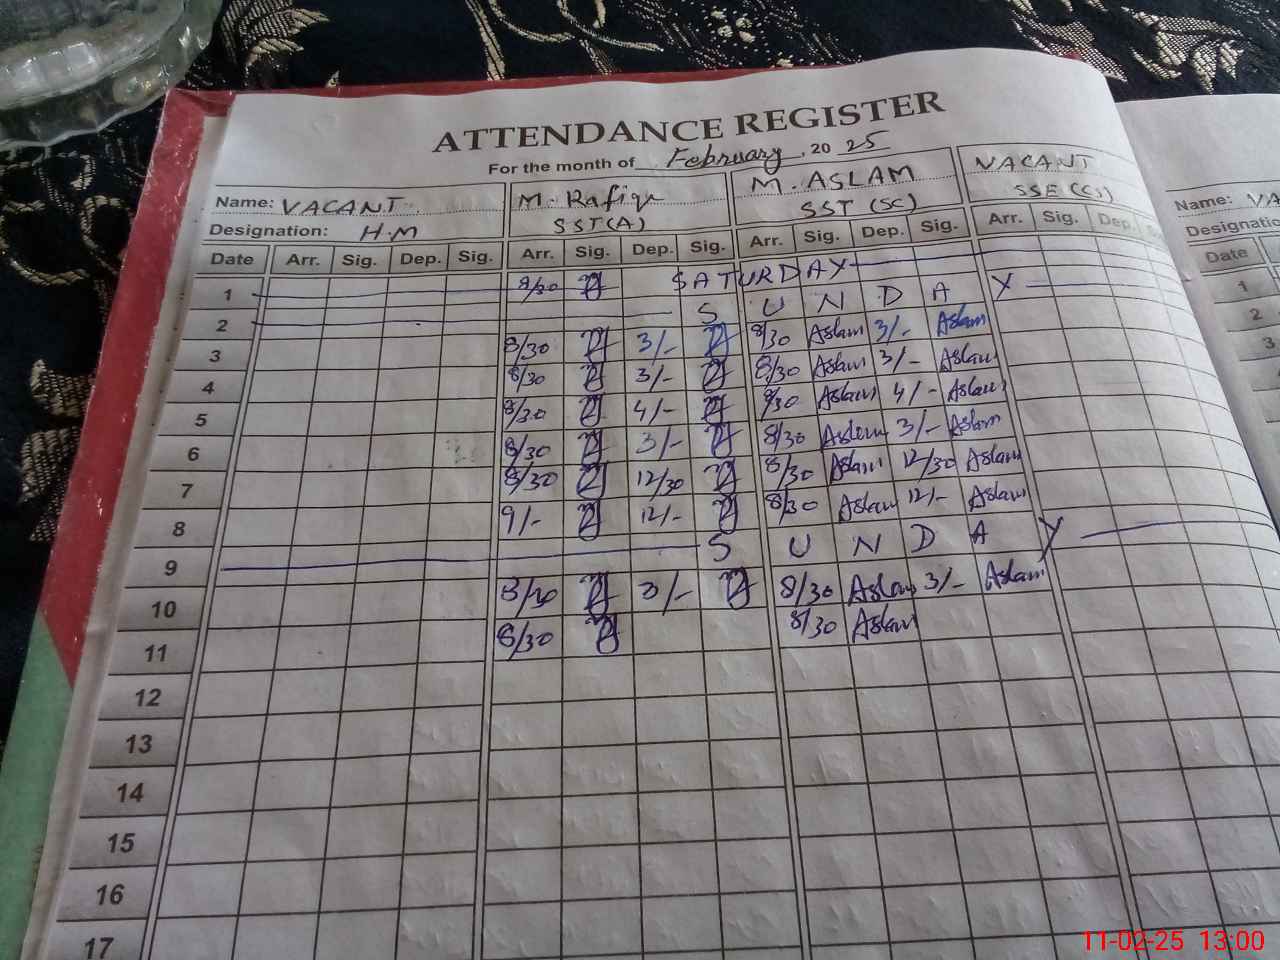 ATTENDANCE REGISTER
For the month of February, 2025
Name: VACANT M. Rafiqu M. ASLAM VACANT Name: VA
Designation: H.M SST(A) SST (SC) SSE (CS) Designatio
Date Arr. Sig. Dep. Sig. Arr. Sig. Dep. Sig. Arr. Sig. Dep. Sig. Arr. Sig. Dep. Date
1 8/30 SATURDAY 1
2 SUNDAY 2
3 8/30 3/- 8/30 Aslam 3/- Aslam 3
4 8/30 3/- 8/30 Aslam 3/- Aslam 4
5 8/30 4/- 8/30 Aslam 4/- Aslam 5
6 8/30 3/- 8/30 Aslam 3/- Aslam
7 8/30 12/30 8/30 Aslam 12/30 Aslam
8 9/- 12/- 8/30 Aslam 12/- Aslam
9 SUNDAY
10 8/30 3/- 8/30 Aslam 3/- Aslam
11 8/30 8/30 Aslam
12
13
14
15
16
17
11-02-25 13:00